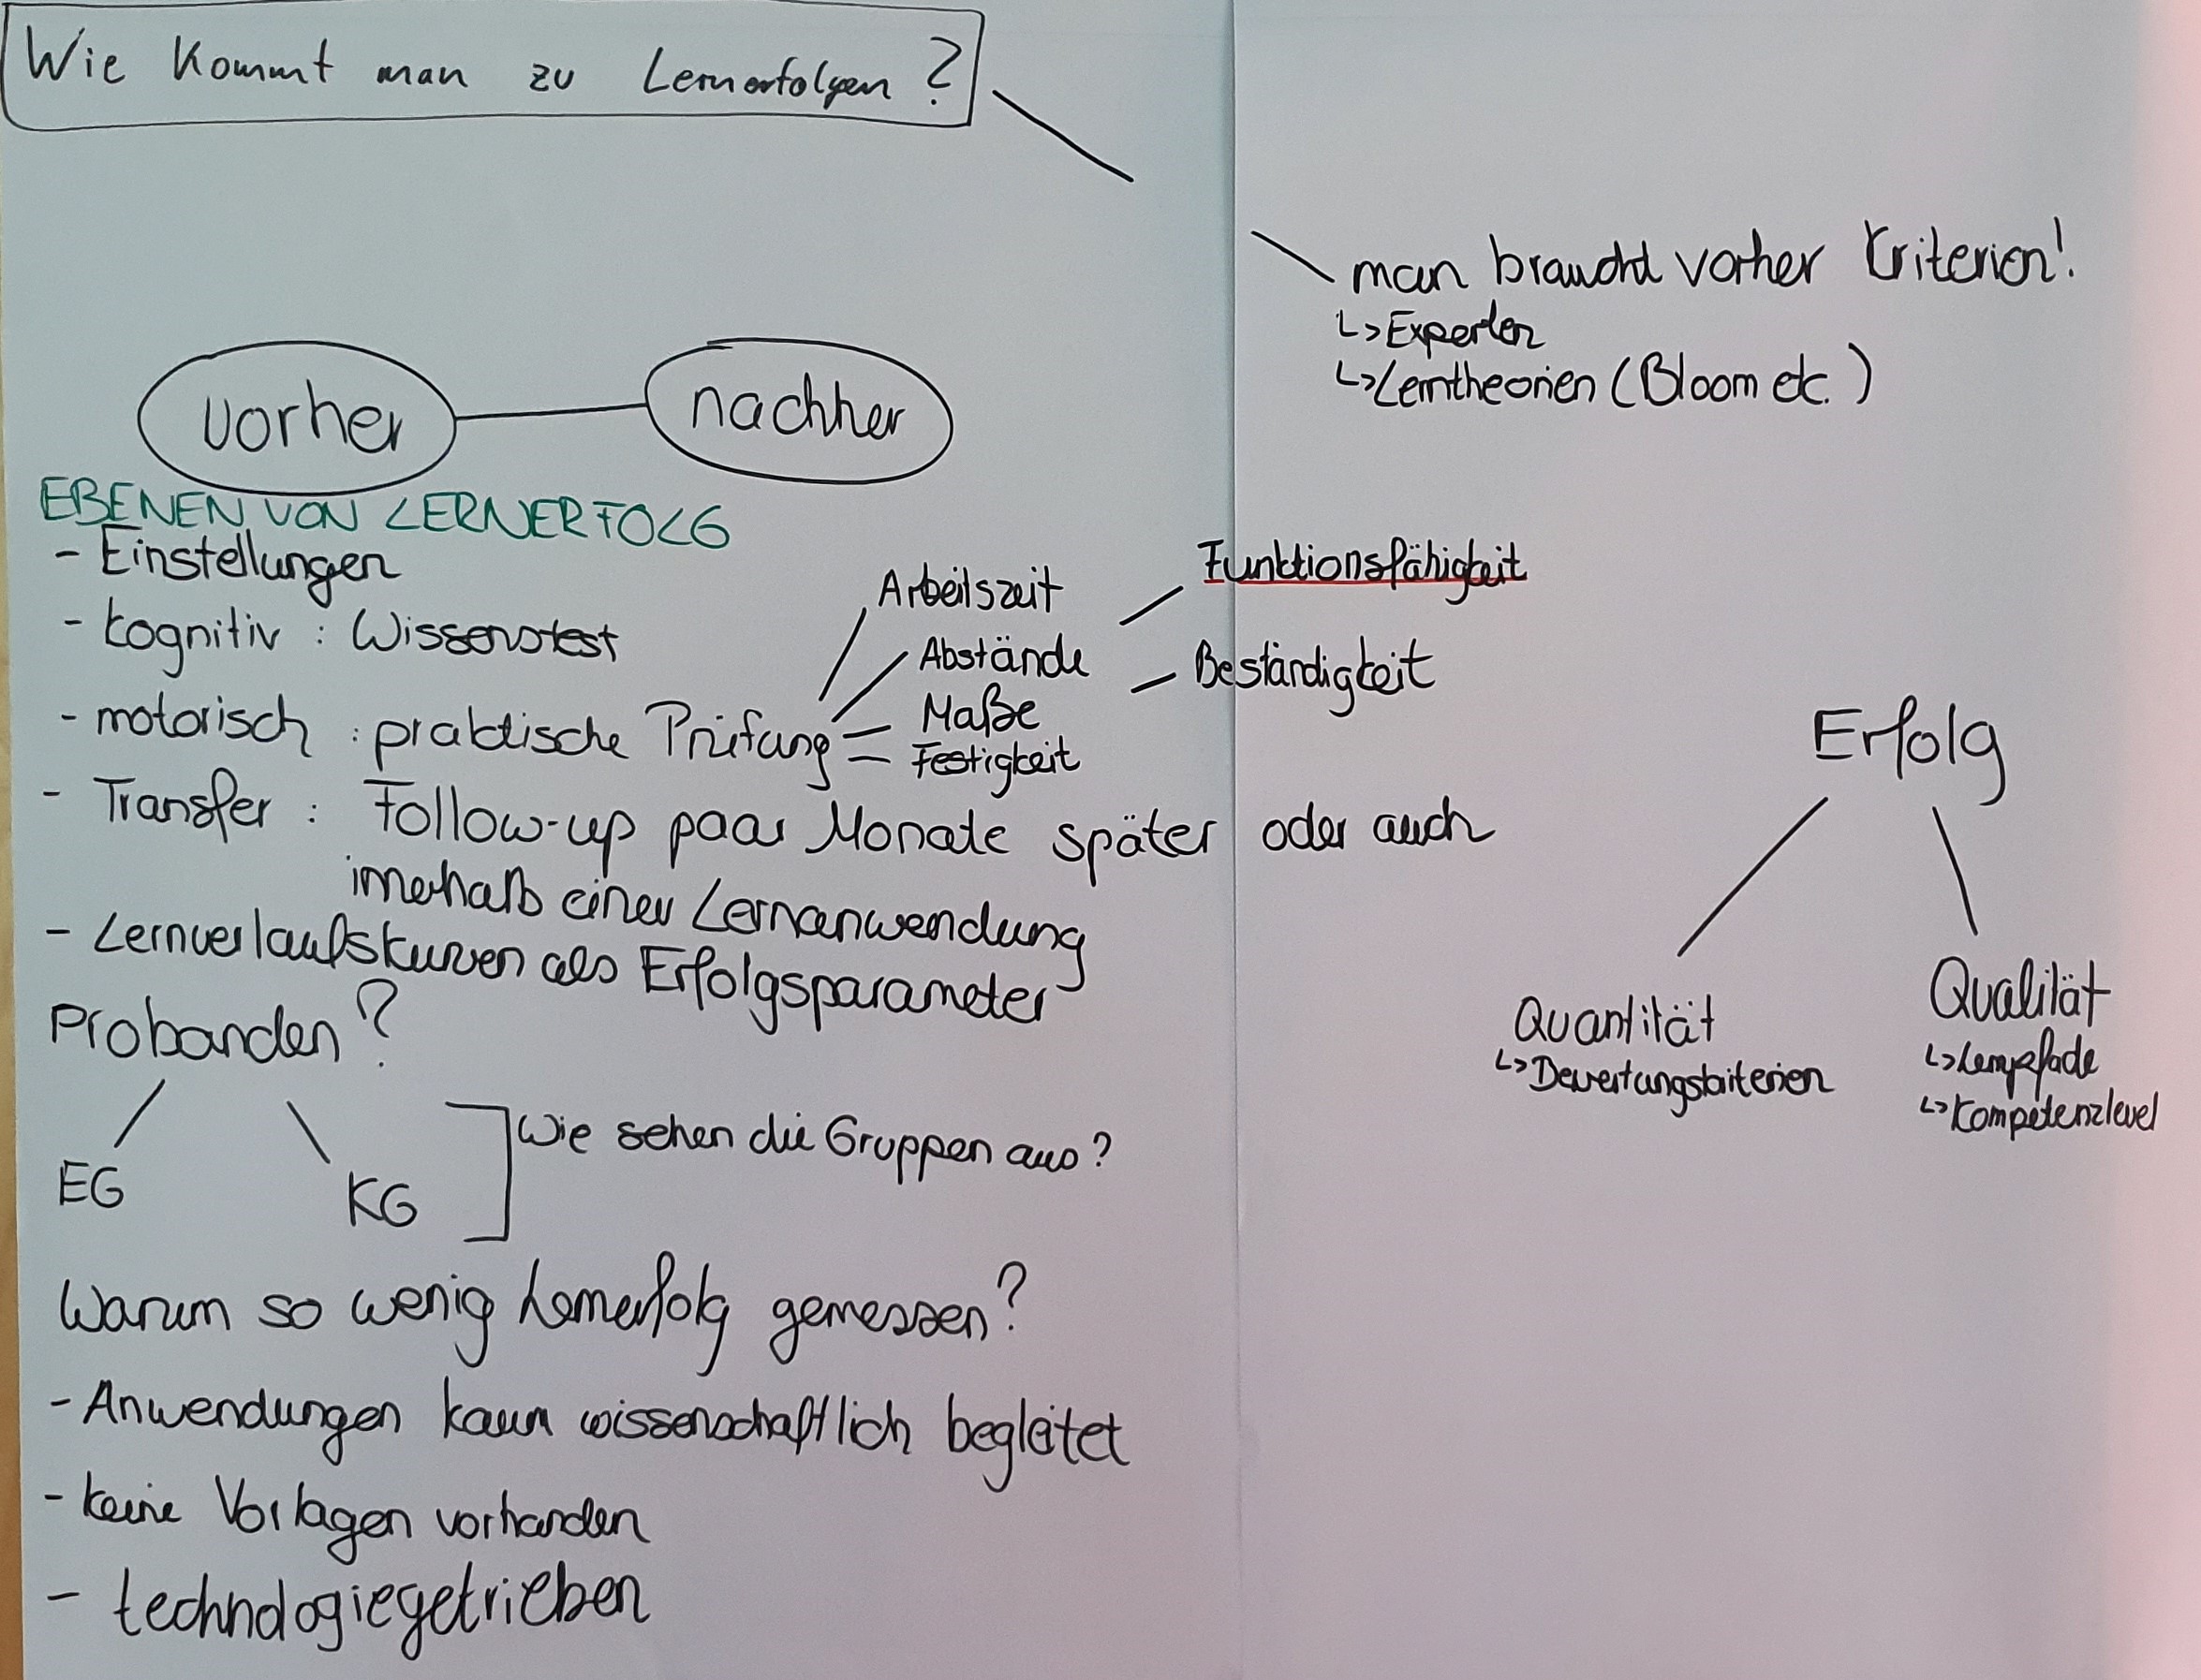 Wie kommt man zu Lernerfolgen?
man braucht vorher Kriterien!
↳ Experten
↳ Lerntheorien (Bloom etc.)
vorher
nachher
EBENEN VON LERNERFOLG
- Einstellungen
- kognitiv : Wissenstest
- motorisch : praktische Prüfung
Arbeitszeit
Abstände
Maße
Festigkeit
Funktionsfähigkeit
Beständigkeit
- Transfer : Follow-up paar Monate später oder auch
innerhalb einer Lernanwendung
- Lernverlaufskurven als Erfolgsparameter
Probanden?
EG
KG
Wie sehen die Gruppen aus?
Warum so wenig Lernerfolg gemessen?
- Anwendungen kaum wissenschaftlich begleitet
- keine Vorlagen vorhanden
- technologiegetrieben
Erfolg
Quantität
↳ Bewertungskriterien
Qualität
↳ Lernpfade
↳ Kompetenzlevel